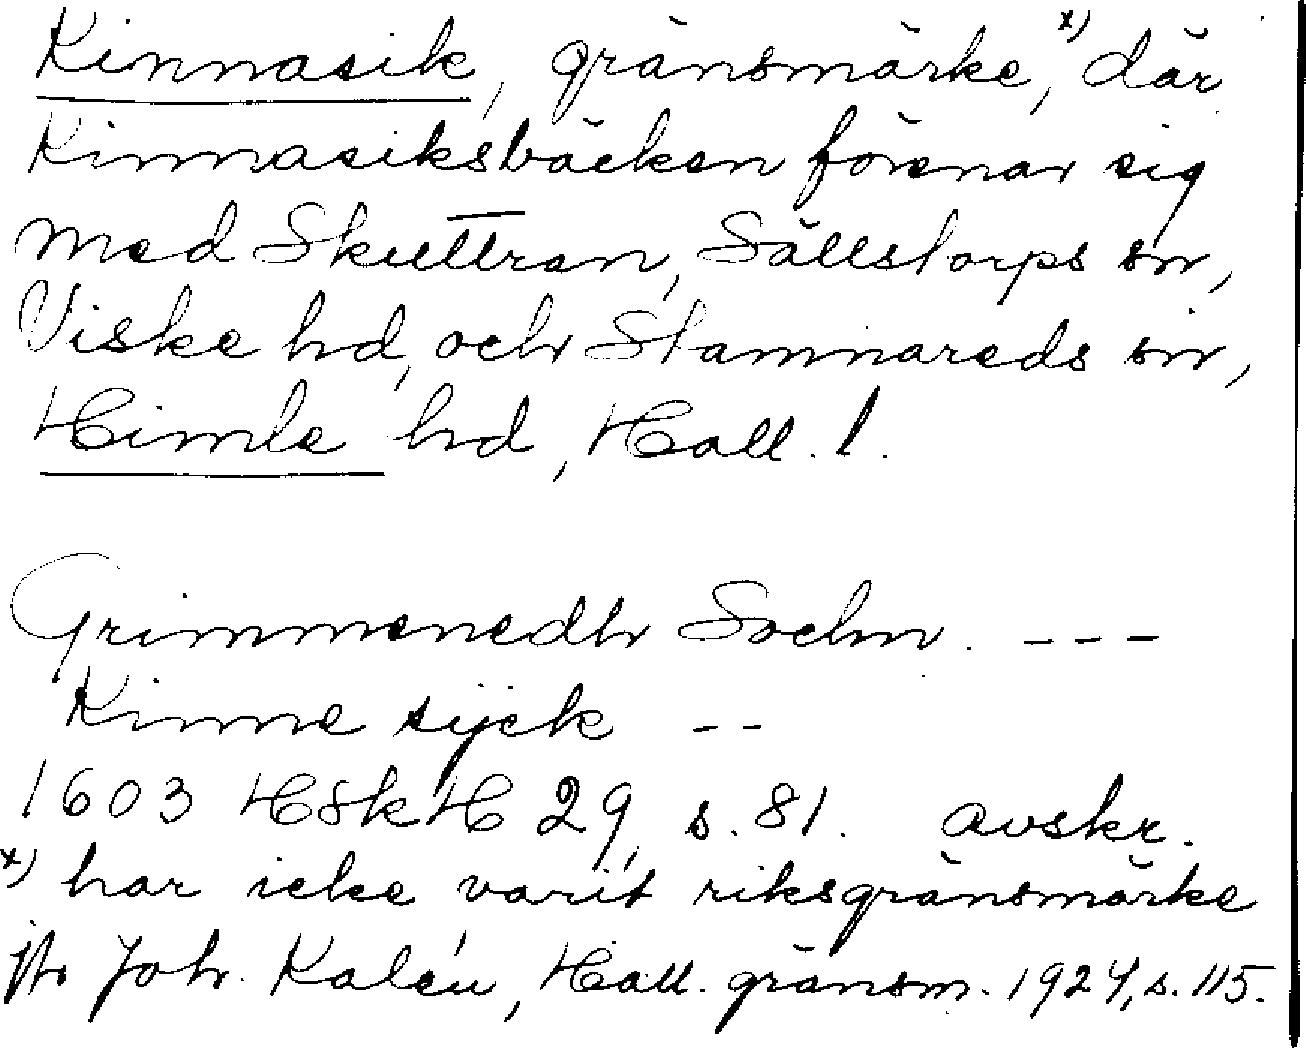 Kinnasik, gränsmärke, x) där
Kinnasiksbäcken förenar sig
med Skuttran, Sällstorps sn,
Viske hd, och Stamnareds sn,
Himle hd, Hall. l.
Grimmenedh Sochn. ---
Kinne sijck --
1603 HSkH 29, s. 81. avskr.
x) har icke varit riksgränsmärke
jfr Joh. Kalén, Hall. gränsm. 1924, s. 115.